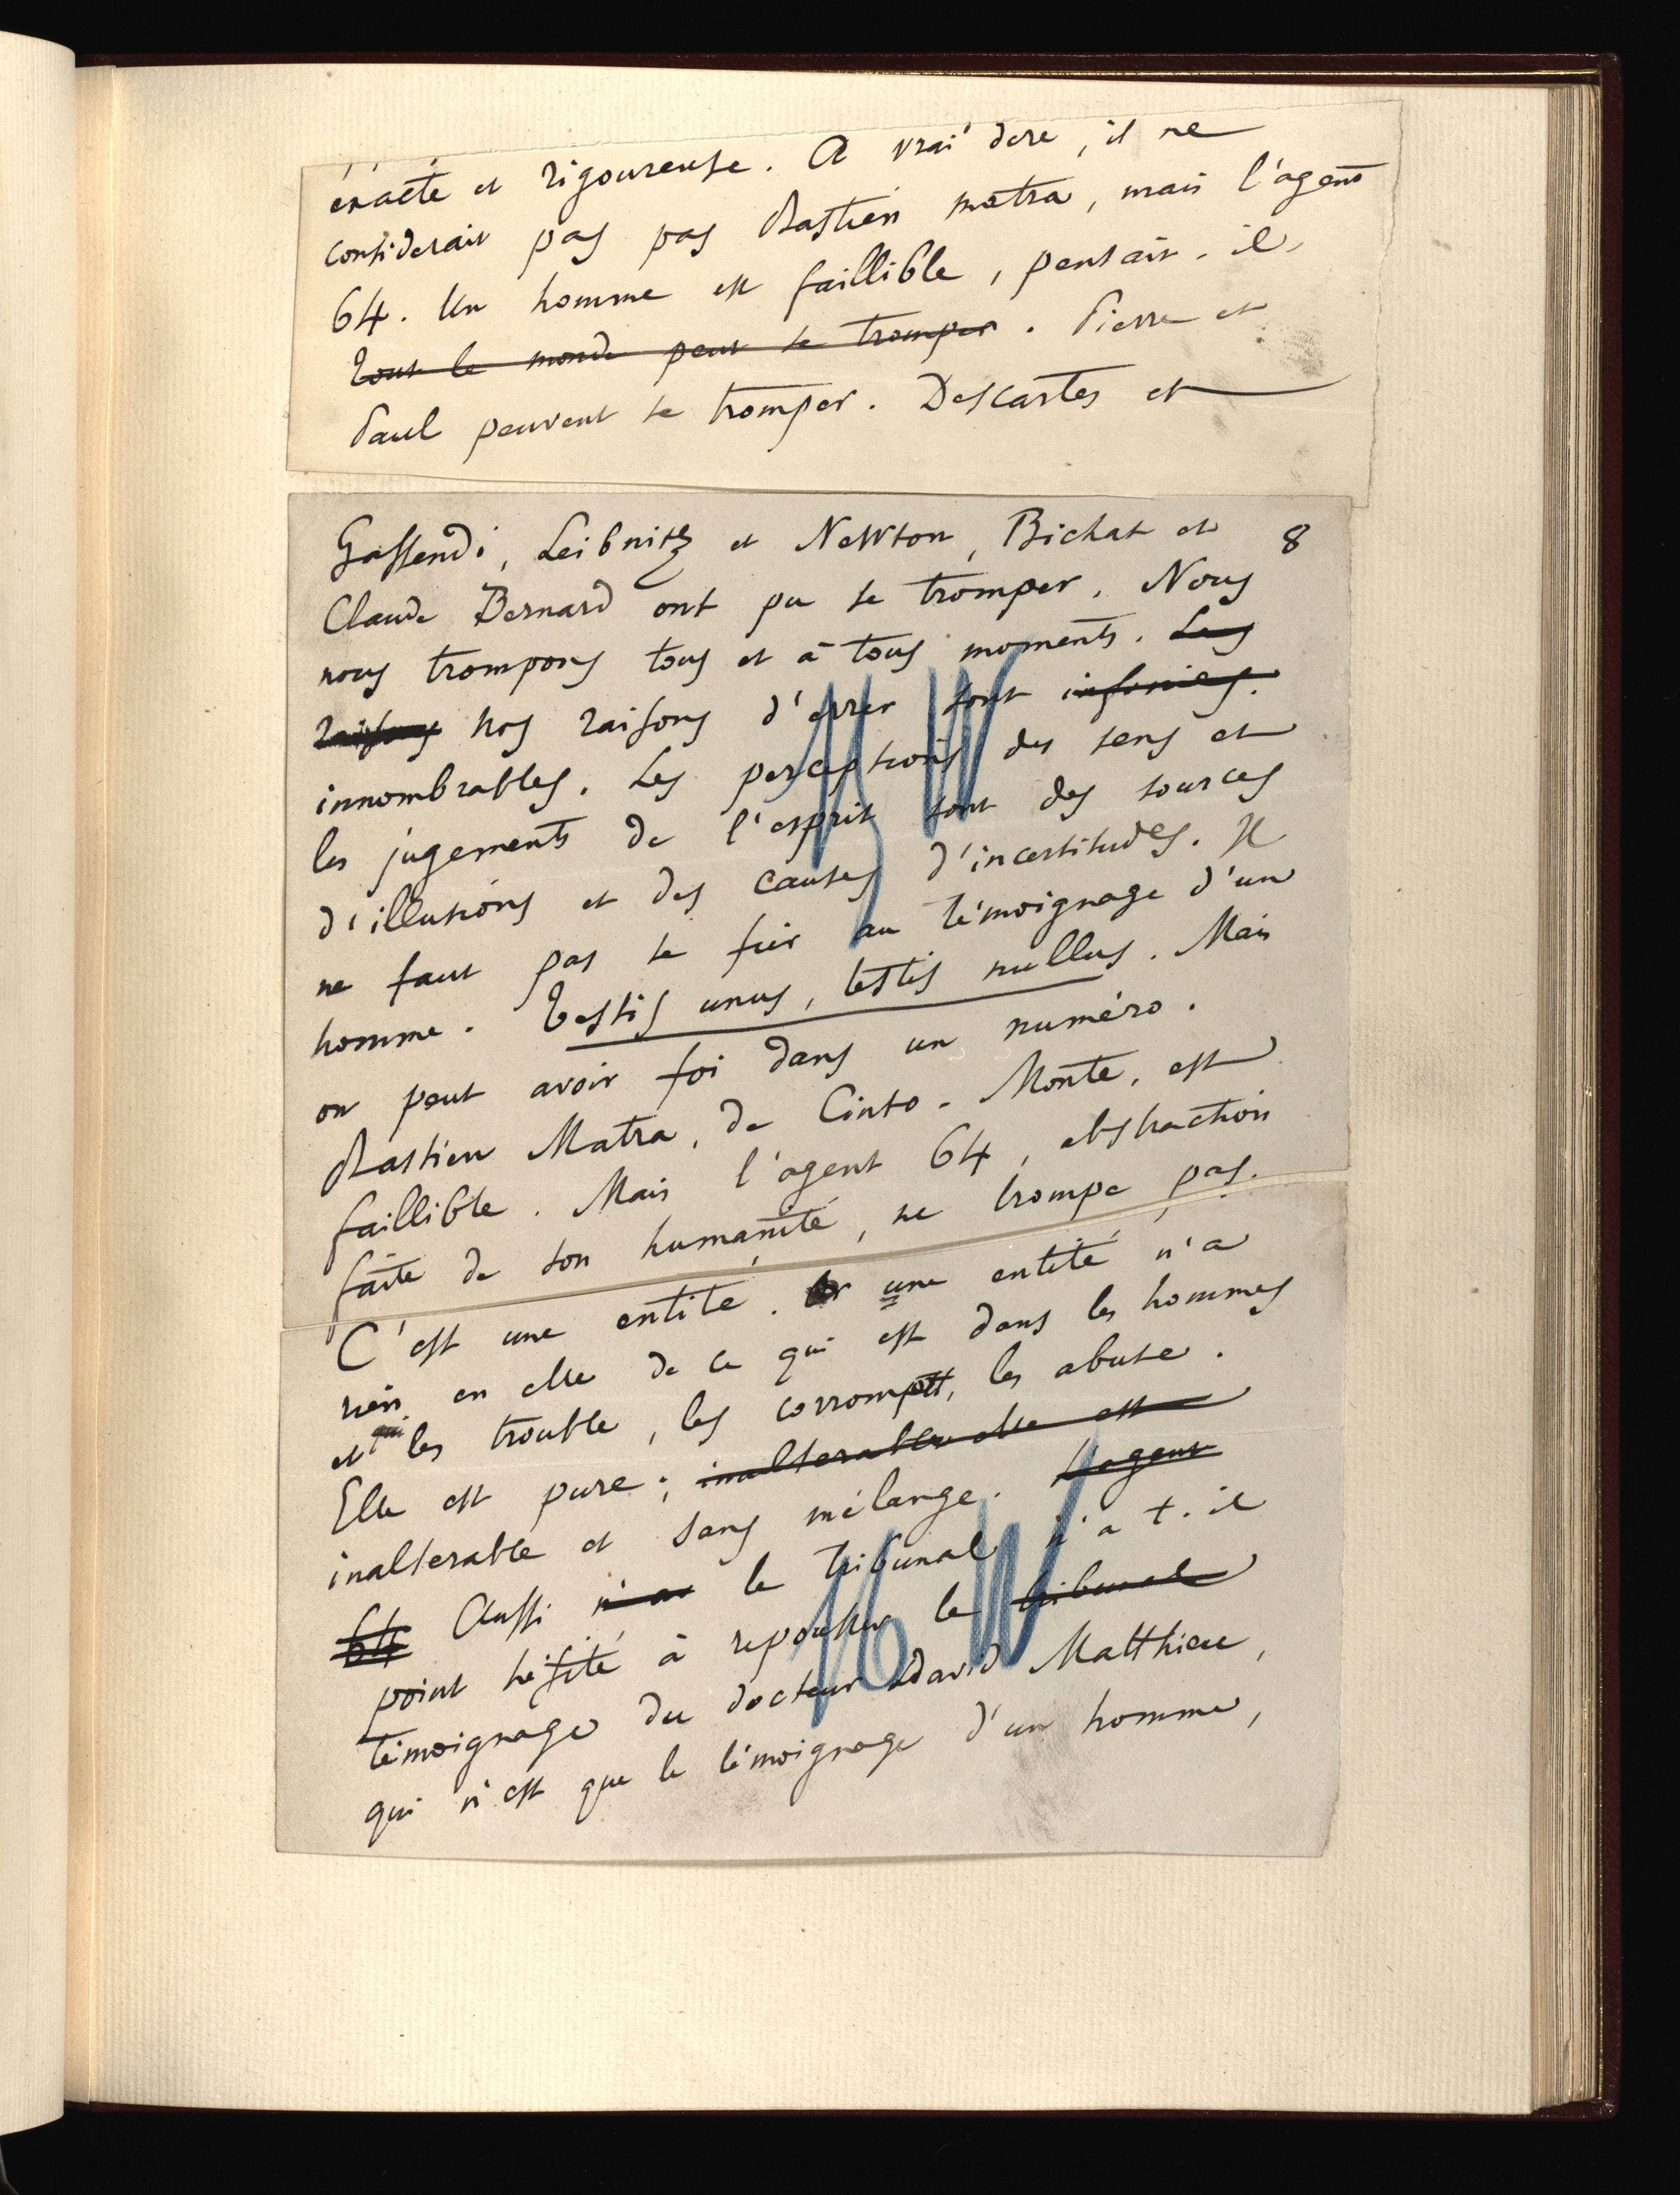 exacte et rigoureuse. A vrai dire, il ne
considerait pas pas Bastien matra, mais l'agent
64. Un homme est faillible, pensait-il,
Tout le monde peut se tromper. Pierre et
Paul peuvent se tromper. Descartes et
Gassendi, Leibnitz et NeWton, Bichat et 8
Claude Bernard ont pu se tromper. Nous
nous trompons tous et à tous moments. Les
raisons Nos raisons d'errer sont infinies.
innombrables. Les perceptions des sens et
les jugements de l'esprit sont des sources
d'illusions et des causes d'incertitudes. Il
ne faut pas se fier au témoignage d'un
homme. Testis unus, testis nullus. Mais
on peut avoir foi dans un numéro.
Bastien Matra, de Cinto-Monte, est
faillible. Mais l'agent 64, abstraction
faite de son humanité, ne trompe pas.
C'est une entité. Or une entité n'a
rien en elle de ce qui est dans les hommes
et qui les trouble, les corrompt, les abuse.
Elle est pure; inalterable elle est
inalterable et sans mélange. L'agent
64 Aussi n'a le tribunal n'a t-il
point hésité à repousser le tribunal
témoignage du docteur David Matthieu,
qui n'est que le témoignage d'un homme,